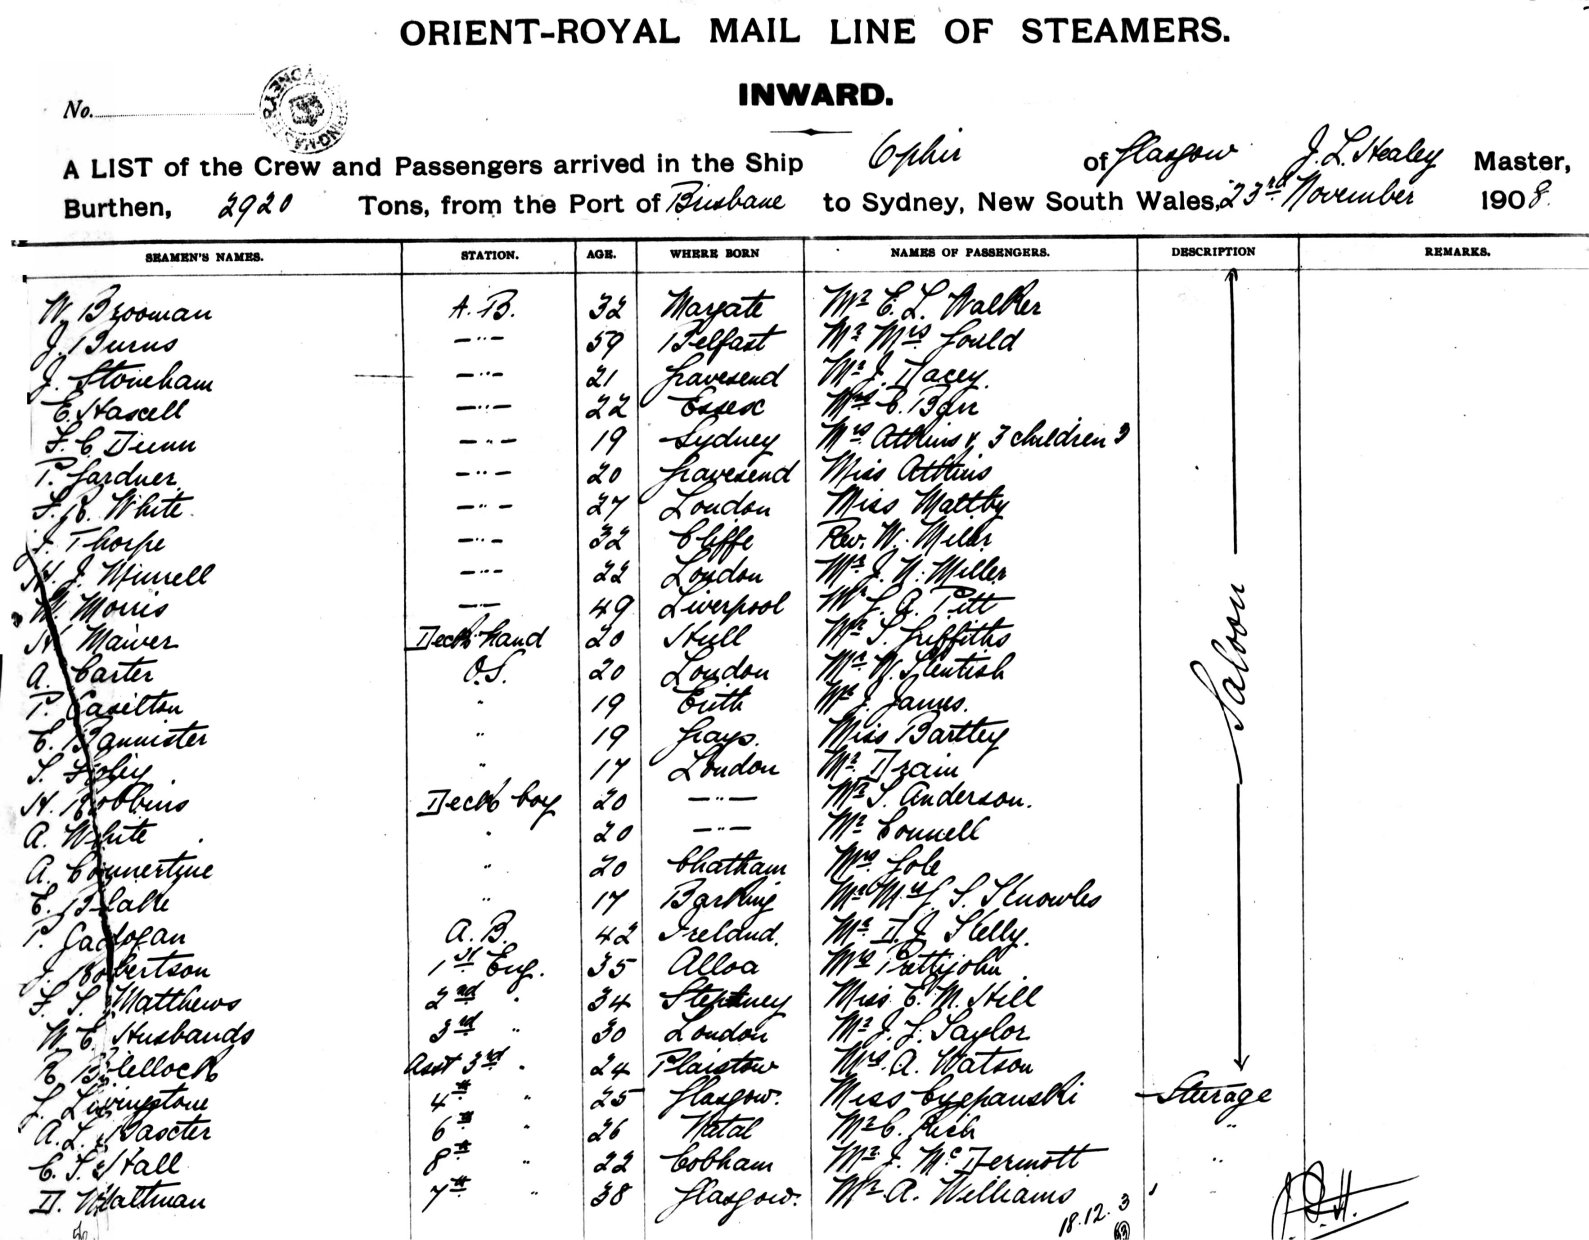 ORIENT-ROYAL MAIL LINE OF STEAMERS.
INWARD.
No.
A LIST of the Crew and Passengers arrived in the Ship Ophir of Glasgow J. L. Healey Master,
Burthen, 2920 Tons, from the Port of Brisbane to Sydney, New South Wales, 23rd November 1908.
SEAMEN'S NAMES. STATION. AGE. WHERE BORN NAMES OF PASSENGERS. DESCRIPTION REMARKS.
W. Brooman A. B. 32 Margate Mr E. L. Walker
J. Burns —"— 59 Belfast Mr Mrs Gould
J. Stoneham —"— 21 Gravesend Mr J. Dacey.
E. Hascell —"— 22 Essex Mrs C. Barr
F. C. Dunn —"— 19 Sydney Mrs Atkins & 3 children 3
P. Gardner —"— 20 Gravesend Miss Atkins
F. R. White —"— 27 London Miss Maltby
J. Thorpe —"— 32 Cliffe Rev. W. Miller
H. J. Winnell —"— 22 London Mr J. N. Miller
M. Morris —"— 49 Liverpool Mr G. A. Pitt
H. Maiver Deck hand 20 Hull Mr S. Griffiths
A. Carter O.S. 20 London Mr W. Kentish
P. Casilton " 19 Erith Mr J. James.
E. Bannister " 19 Grays. Miss Bartley
S. Foley " 17 London Mr Drain
Saloon
H. Robbins Deck boy 20 —"— Mr S. Anderson.
A. White " 20 —"— Mr Connell
A. Connertine " 20 Chatham Mrs Cole
E. Blake " 17 Barking Mr Mrs S. Knowles
P. Gadogan A. B. 42 Ireland. Mr D. J. Kelly.
J. Robertson 1st Eng. 35 Alloa Mrs Pettijohn
F. S. Matthews 2nd " 34 Stepney Miss E. M. Hill
W. E. Husbands 3rd " 30 London Mr J. G. Taylor
R. Blellock Asst 3rd " 24 Plaistow Mrs A. Watson
J. Livingstone 4th " 25 Glasgow. Miss Czepanski Sturage
A. L. Bascter 6th " 26 Natal Mr C. Rich "
C. F. Hall 8th " 22 Cobham Mr J. McDermott "
D. Waltman 7th " 38 Glasgow. Mr A. Williams
18.12.3